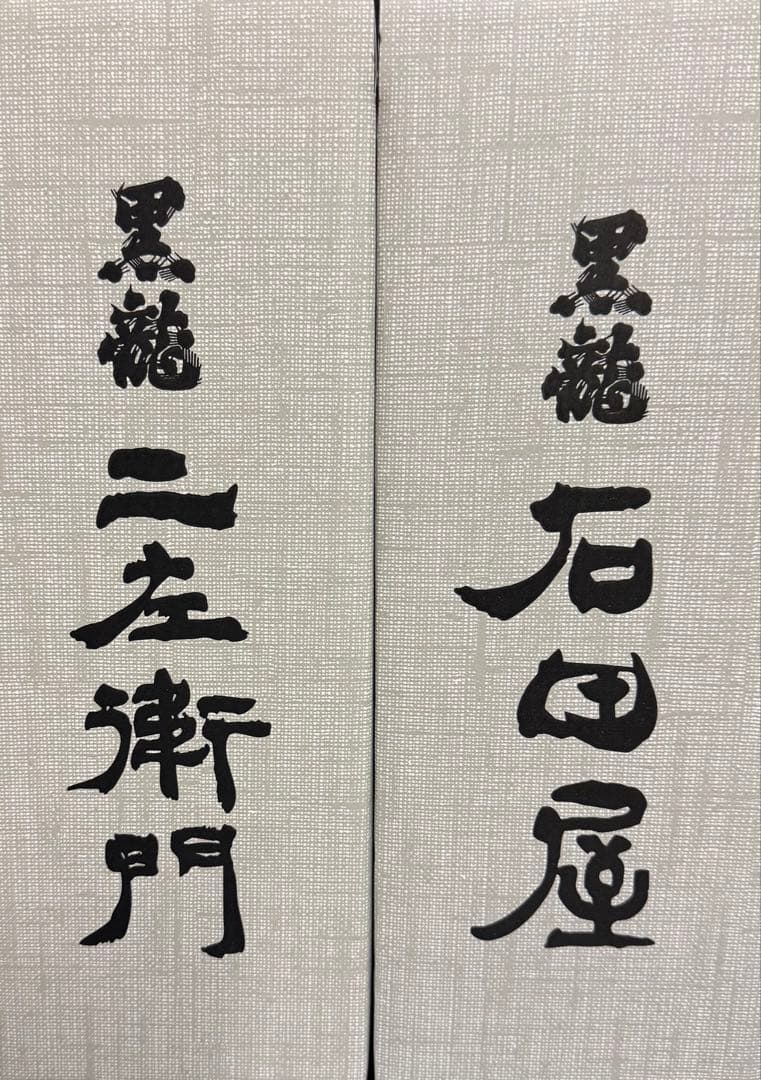 黒龍 石田屋
黒龍 二左衛門